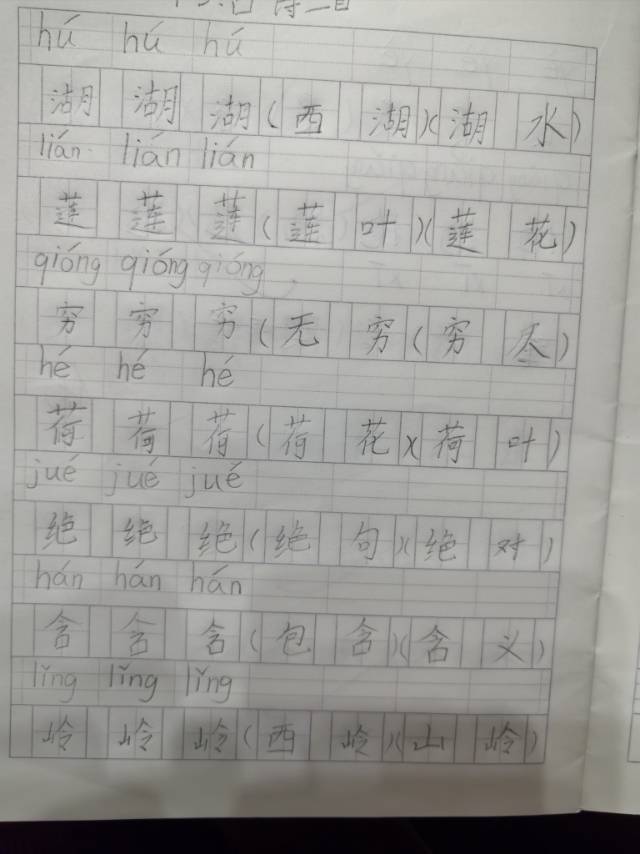 古诗二首
hú hú hú
湖 湖 湖(西 湖)(湖 水)
lián lián lián
莲 莲 莲(莲 叶)(莲 花)
qióng qióng qióng
穷 穷 穷(无 穷(穷 尽)
hé hé hé
荷 荷 荷(荷 花)(荷 叶)
jué jué jué
绝 绝 绝(绝 句)(绝 对)
hán hán hán
含 含 含(包 含)(含 义)
lǐng lǐng lǐng
岭 岭 岭(西 岭)(山 岭)